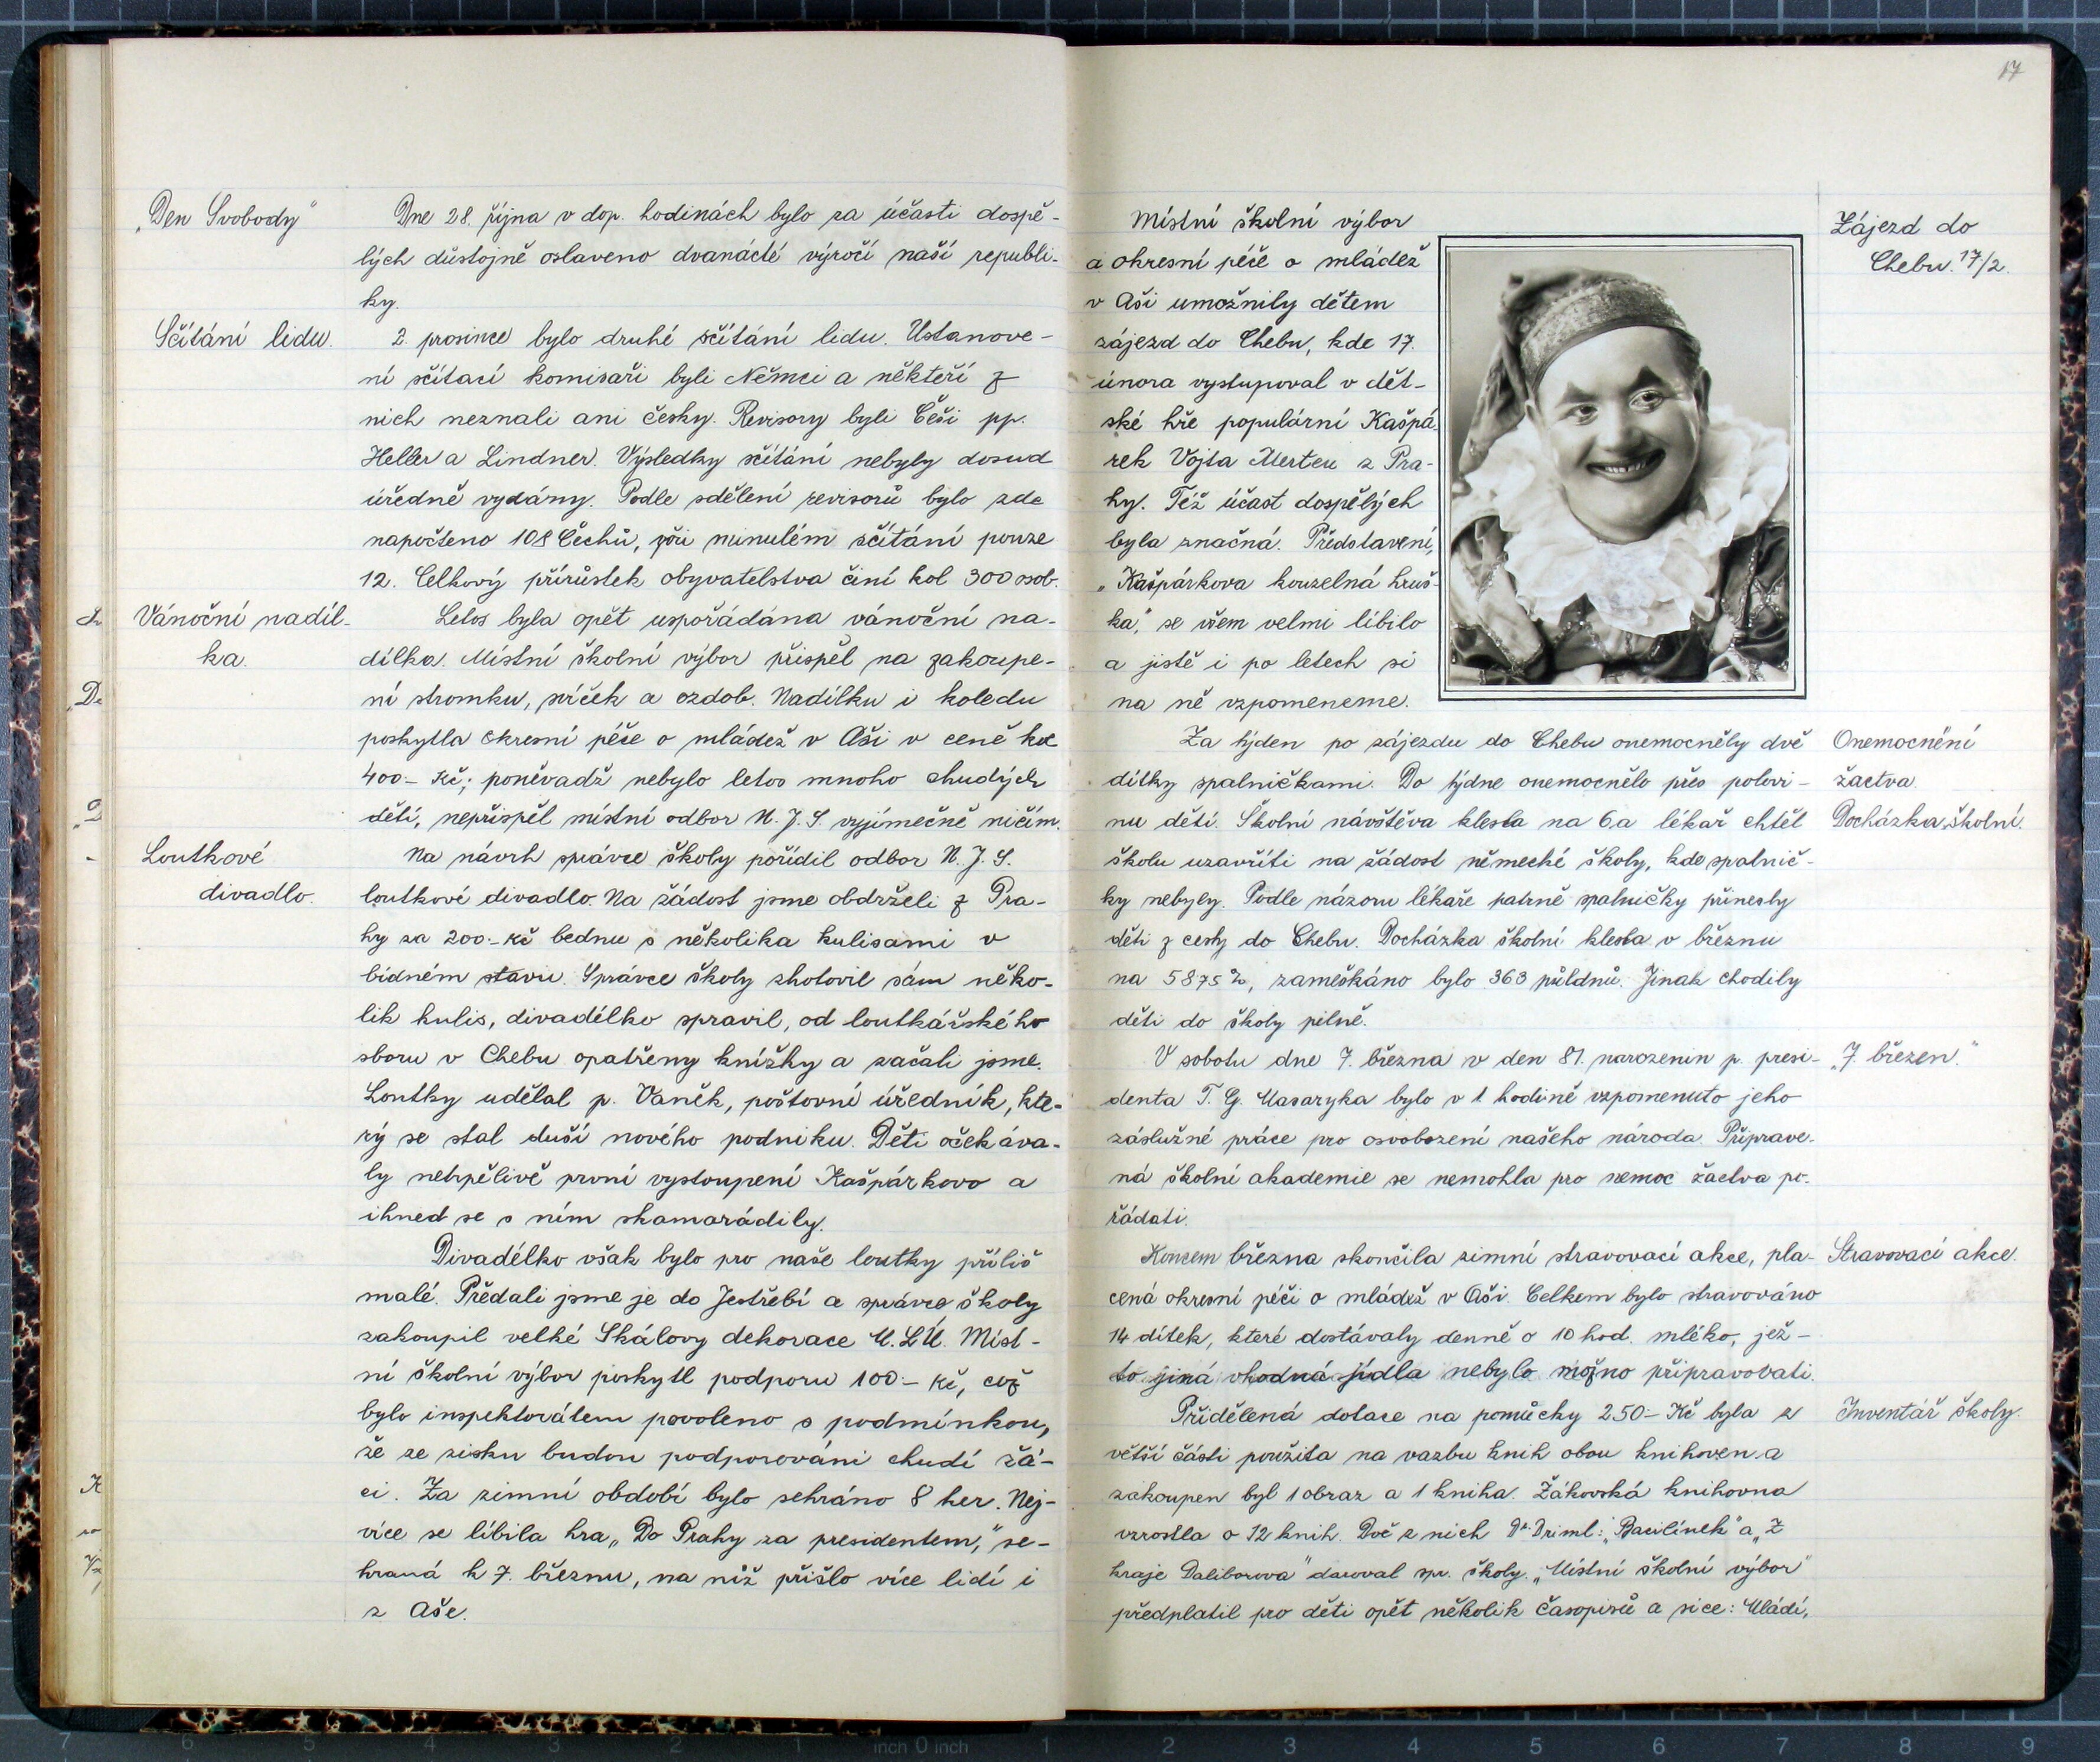 „Den Svobody“
Dne 28. října v dop. hodinách bylo za účasti dospě-
lých důstojně oslaveno dvanácté výročí naší republi-
ky.
Sčítání lidu.
2. prosince bylo druhé sčítání lidu. Ustanove-
ní sčítací komisaři byli Němci a někteří z
nich neznali ani česky. Revisory byli Češi pp.
Heller a Lindner. Výsledky sčítání nebyly dosud
úředně vydány. Podle sdělení revisorů bylo zde
napočteno 108 Čechů, při minulém sčítání pouze
12. Celkový přírůstek obyvatelstva činí kol 300 osob.
Vánoční nadíl-
ka.
Letos byla opět uspořádána vánoční na-
dílka. Místní školní výbor přispěl na zakoupe-
ní stromku, svíček a ozdob. Nadílku i koledu
poskytla okresní péče o mládež v Aši v ceně kol
400.- Kč; poněvadž nebylo letos mnoho chudých
dětí, nepřispěl místní odbor N. J. S. vyjímečně ničím.
Loutkové
divadlo.
Na návrh správce školy pořídil odbor N. J. S.
loutkové divadlo. Na žádost jsme obdrželi z Pra-
hy za 200.- Kč bednu s několika kulisami v
bídném stavu. Správce školy zhotovil sám něko-
lik kulis, divadélko spravil, od loutkářského
sboru v Chebu opatřeny knížky a začali jsme.
Loutky udělal p. Vaněk, poštovní úředník, kte-
rý se stal duší nového podniku. Děti očekáva-
ly netrpělivě první vystoupení Kašpárkovo a
ihned se s ním skamarádily.
Divadélko však bylo pro naše loutky příliš
malé. Předali jsme je do Jestřebí a správce školy
zakoupil velké Skálovy dekorace U.L.Ú. Míst-
ní školní výbor poskytl podporu 100.- Kč, což
bylo inspektorátem povoleno s podmínkou,
že ze zisku budou podporováni chudí žá-
ci. Za zimní období bylo sehráno 8 her. Nej-
více se líbila hra „Do Prahy za presidentem,“ se-
hraná k 7. březnu, na níž přišlo více lidí i
z Aše.
17
Místní školní výbor
a okresní péče o mládež
v Aši umožnily dětem
zájezd do Chebu, kde 17.
února vystupoval v dět-
ské hře populární Kašpá-
rek Vojta Merten z Pra-
hy. Též účast dospělých
byla značná. Představení,
„Kašpárkova kouzelná hruš-
ka,“ se všem velmi líbilo
a jistě i po letech si
na ně vzpomeneme.
Zájezd do
Chebu. 17/2.
Za týden po zájezdu do Chebu onemocněly dvě
dítky spalničkami. Do týdne onemocnělo přes polovi-
nu dětí. Školní návštěva klesla na 6 a lékař chtěl
školu uzavříti na žádost německé školy, kde spalnič-
ky nebyly. Podle názoru lékaře patrně spalničky přinesly
děti z cesty do Chebu. Docházka školní klesla v březnu
na 5875 %, zameškáno bylo 363 půldnů. Jinak chodily
děti do školy pilně.
Onemocnění
žactva.
Docházka školní.
V sobotu dne 7. března v den 81. narozenin p. presi-
denta T. G. Masaryka bylo v 1 hodině vzpomenuto jeho
záslužné práce pro osvobození našeho národa. Připrave-
ná školní akademie se nemohla pro nemoc žactva po-
řádati.
„7. březen.“
Koncem března skončila zimní stravovací akce, pla-
cená okresní péčí o mládež v Aši. Celkem bylo stravováno
14 dítek, které dostávaly denně o 10 hod. mléko, jež-
to jiná vhodná jídla nebylo možno připravovati.
Stravovací akce.
Přidělená dotace na pomůcky 250.- Kč byla z
větší části použita na vazbu knih obou knihoven a
zakoupen byl 1 obraz a 1 kniha. Žákovská knihovna
vzrostla o 12 knih. Dvě z nich Dr. Driml: „Bacilínek“ a „Z
kraje Daliborova“ daroval spr. školy. „Místní školní výbor“
předplatil pro děti opět několik časopisů a sice: Mládí,
Inventář školy.